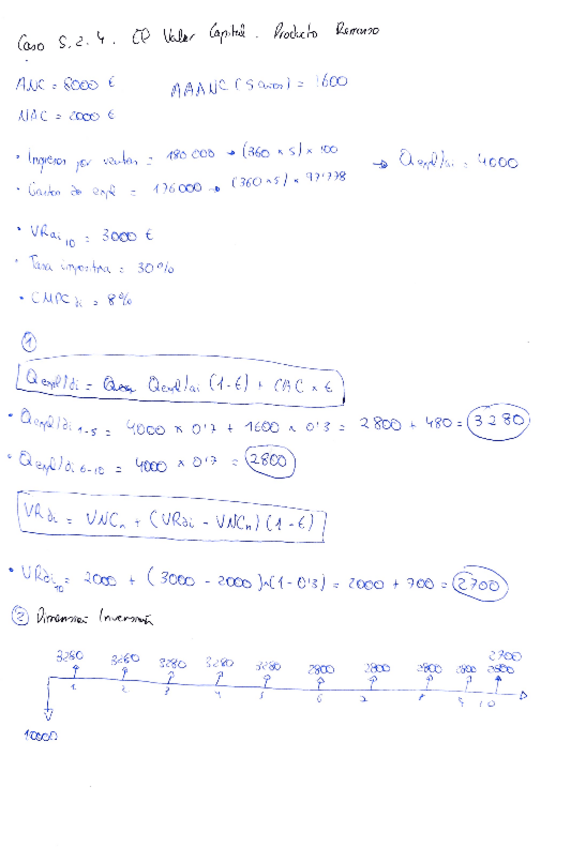 Caso 5.2.4. CP Valor Capital. Producto Remoso
ANC = 8000 € AAANC (5 años) = 1600
NAC = 2000 €
• Ingresos por ventas = 180 000 → (360 x 5) x 100 → Qexpl/ai = 4000
• Gastos de expl = 176000 → (360 x 5) x 97'778
• VRai 10 = 3000 €
• Tasa impositiva = 30%
• CMPC di = 8%
1
Qexpl/di = Qexpl/ai (1-t) + CAC x t
• Qexpl/di 1-5 = 4000 x 0'7 + 1600 x 0'3 = 2800 + 480 = 3280
• Qexpl/di 6-10 = 4000 x 0'7 = 2800
VRdi = VNCn + (VRai - VNCn) (1-t)
• VRdi 10 = 2000 + (3000 - 2000) x (1-0'3) = 2000 + 700 = 2700
2 Dimensión Inversión
2700
3280 3280 3280 3280 3280 2800 2800 2800 2800 2800
1 2 3 4 5 6 7 8 9 10
10000